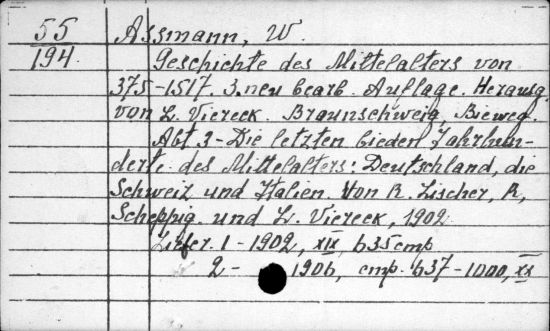 55 Assmann, W.
194. Geschichte des Mittelalters von
375-1517. 3. neu bearb. Auflage. Herausg.
von L. Viereck. Braunschweig, Bieweg.
Abt. 3 - Die letzten bieden Jahrhun-
derte des Mittelalters: Deutschland, die
Schweiz und Italien. Von R. Lischer, R,
Scheppig. und L. Viereck, 1902
Liefer. 1 - 1902, XIX, 635 cmp
2 - 1906, cmp. 637-1000, XX